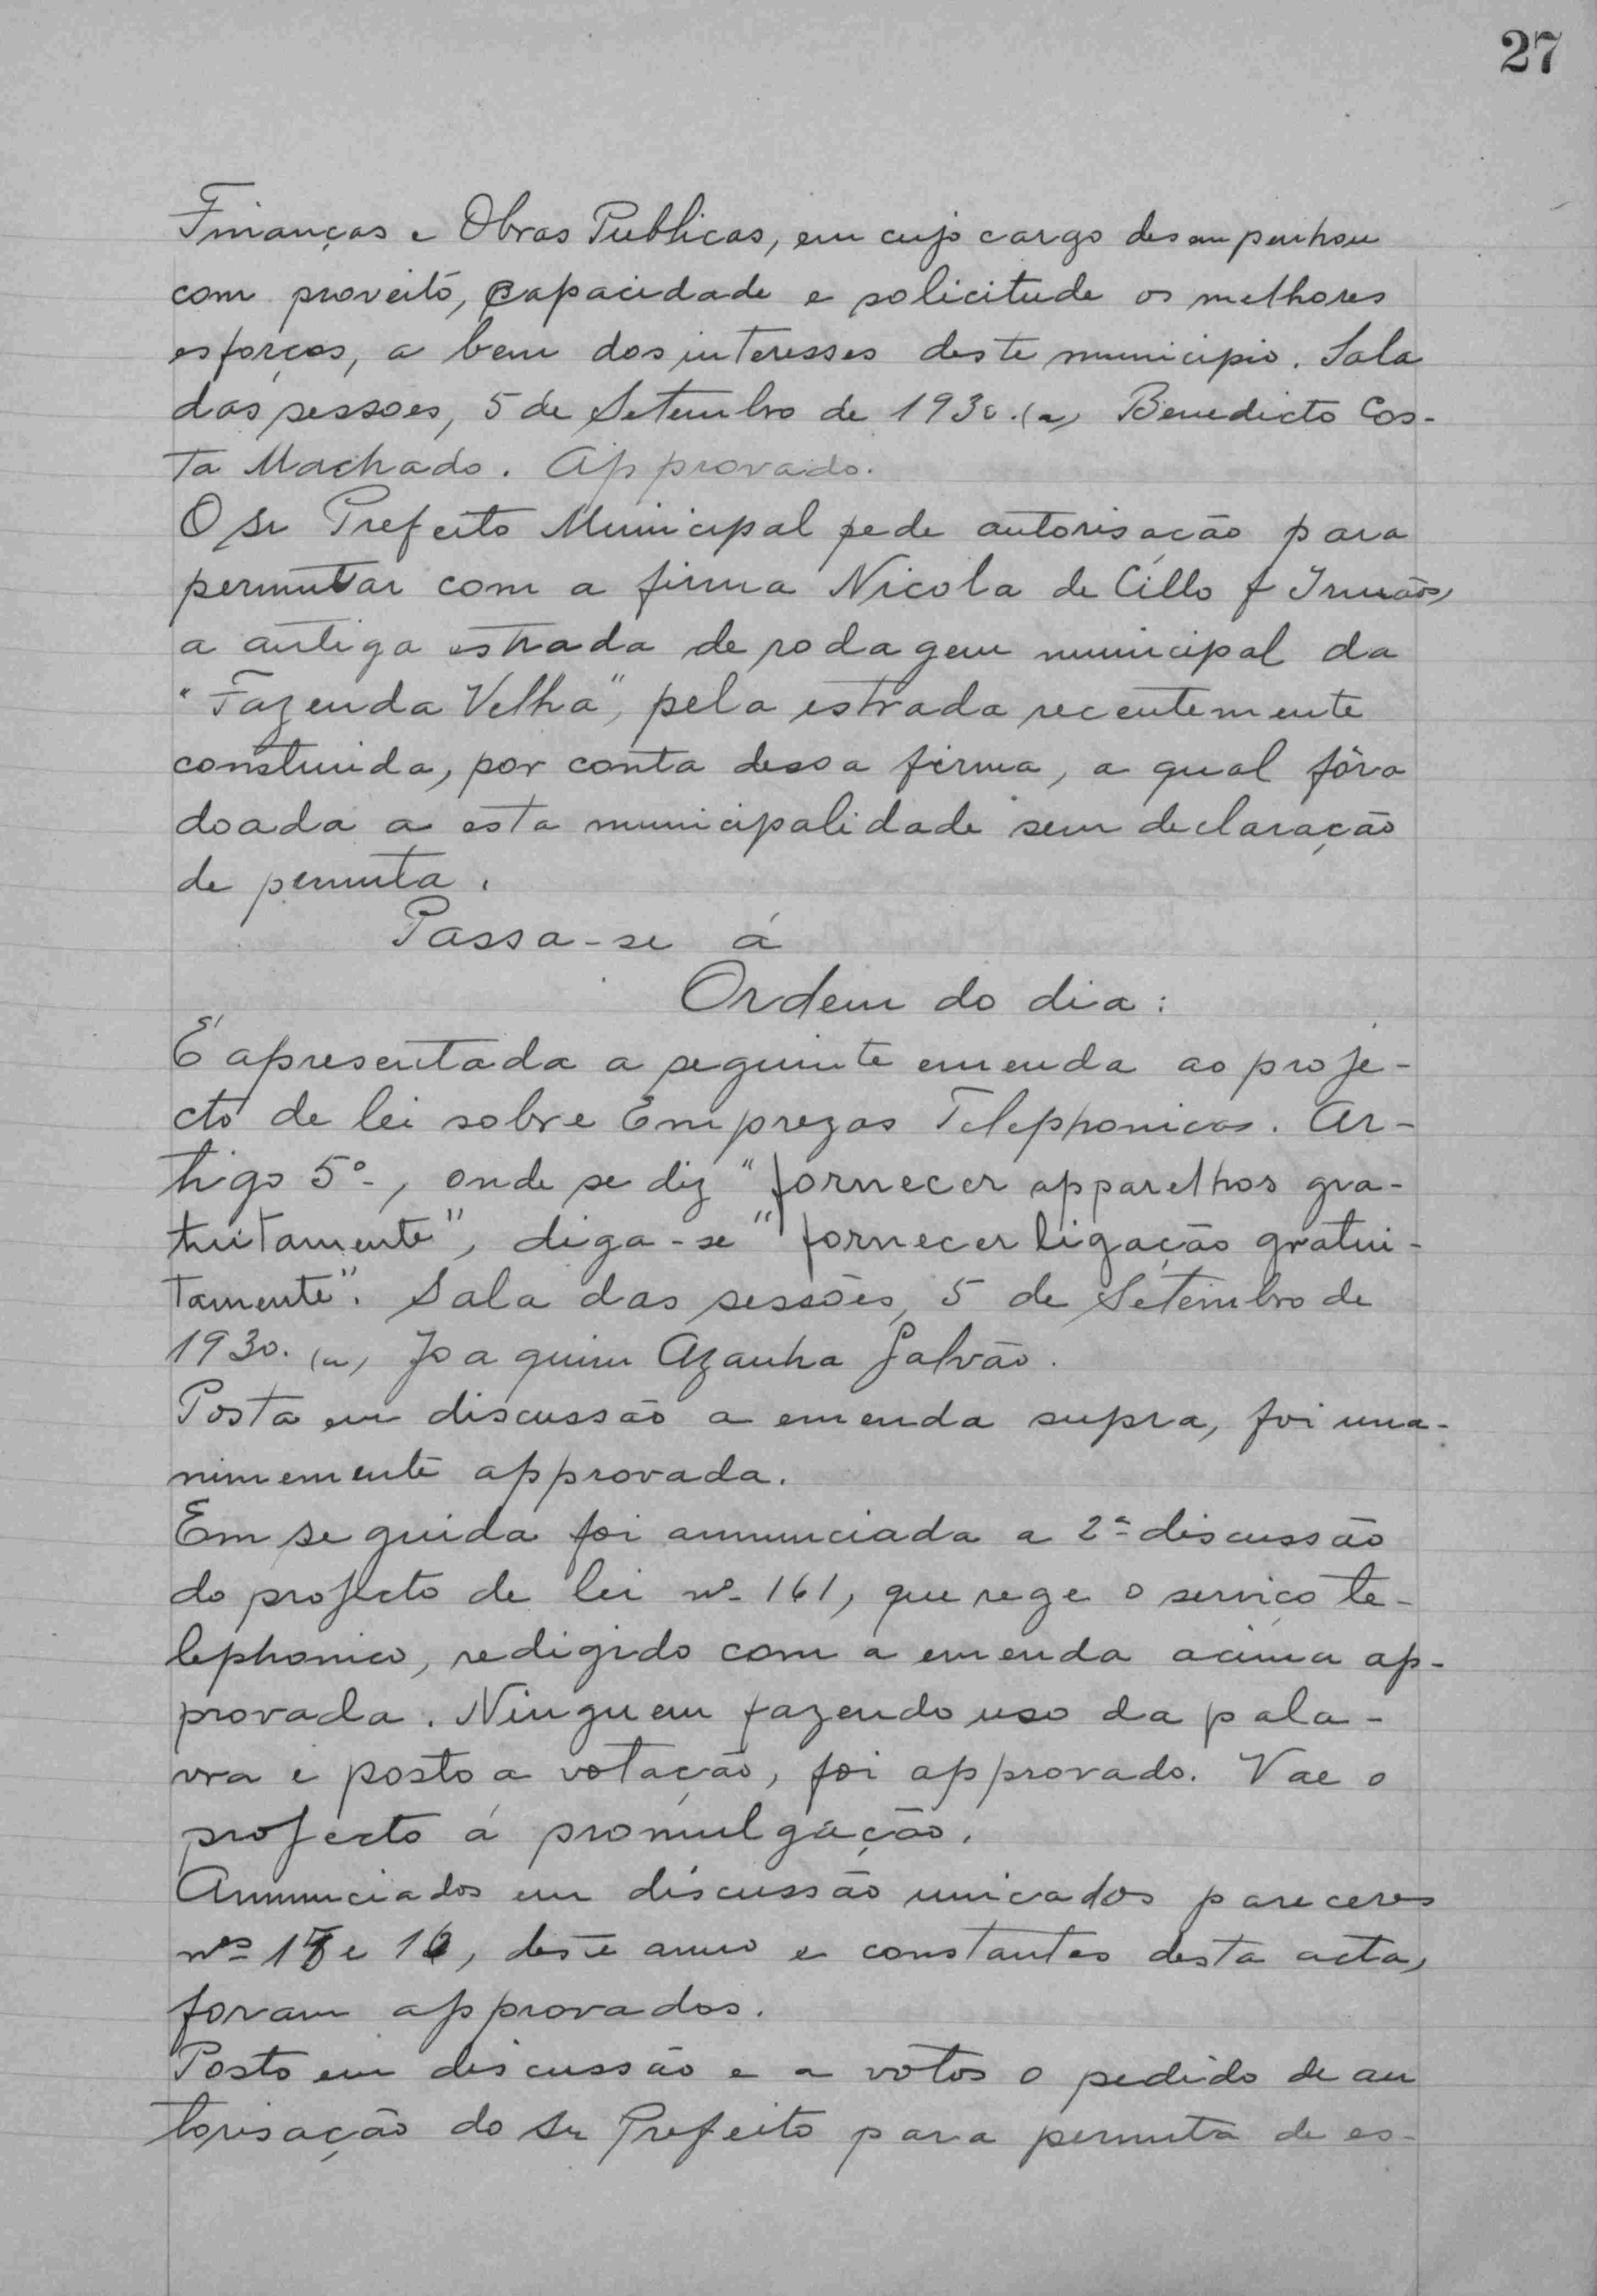 27
Finanças e Obras Publicas, em cujo cargo desempenhou
com proveito, capacidade e solicitude os melhores
esforços, a bem dos interesses deste municipio. Sala
das sessoes, 5 de Setembro de 1930. (a) Benedicto Cos-
ta Machado. Approvado.
O Sr Prefeito Municipal pede autorisação para
permutar com a firma Nicola de Cillo & Irmãos,
a antiga estrada de rodagem municipal da
"Fazenda Velha", pela estrada recentemente
construida, por conta dessa firma, a qual fôra
doada a esta municipalidade sem declaração
de permuta.
Passa-se á
Ordem do dia:
É apresentada a seguinte emenda ao proje-
cto de lei sobre Emprezas Telephonicas. Ar-
tigo 5º, onde se diz "fornecer apparelhos gra-
tuitamente", diga-se "fornecer ligação gratui-
tamente". Sala das sessões, 5 de Setembro de
1930. (a) Joaquim Azanha Galvão.
Posta em discussão a emenda supra, foi una-
nimemente approvada.
Em seguida foi annunciada a 2ª discussão
do projecto de lei nº 161, que rege o serviço te-
lephonico, redigido com a emenda acima ap-
provada. Ninguem fazendo uso da pala-
vra e posto a votação, foi approvado. Vae o
projecto á promulgação.
Annunciados em discussão unica dos pareceres
nºs e 16, deste anno e constantes desta acta,
foram approvados.
Posto em discussão e a votos o pedido de au
torisação do Sr Prefeito para permuta de es-